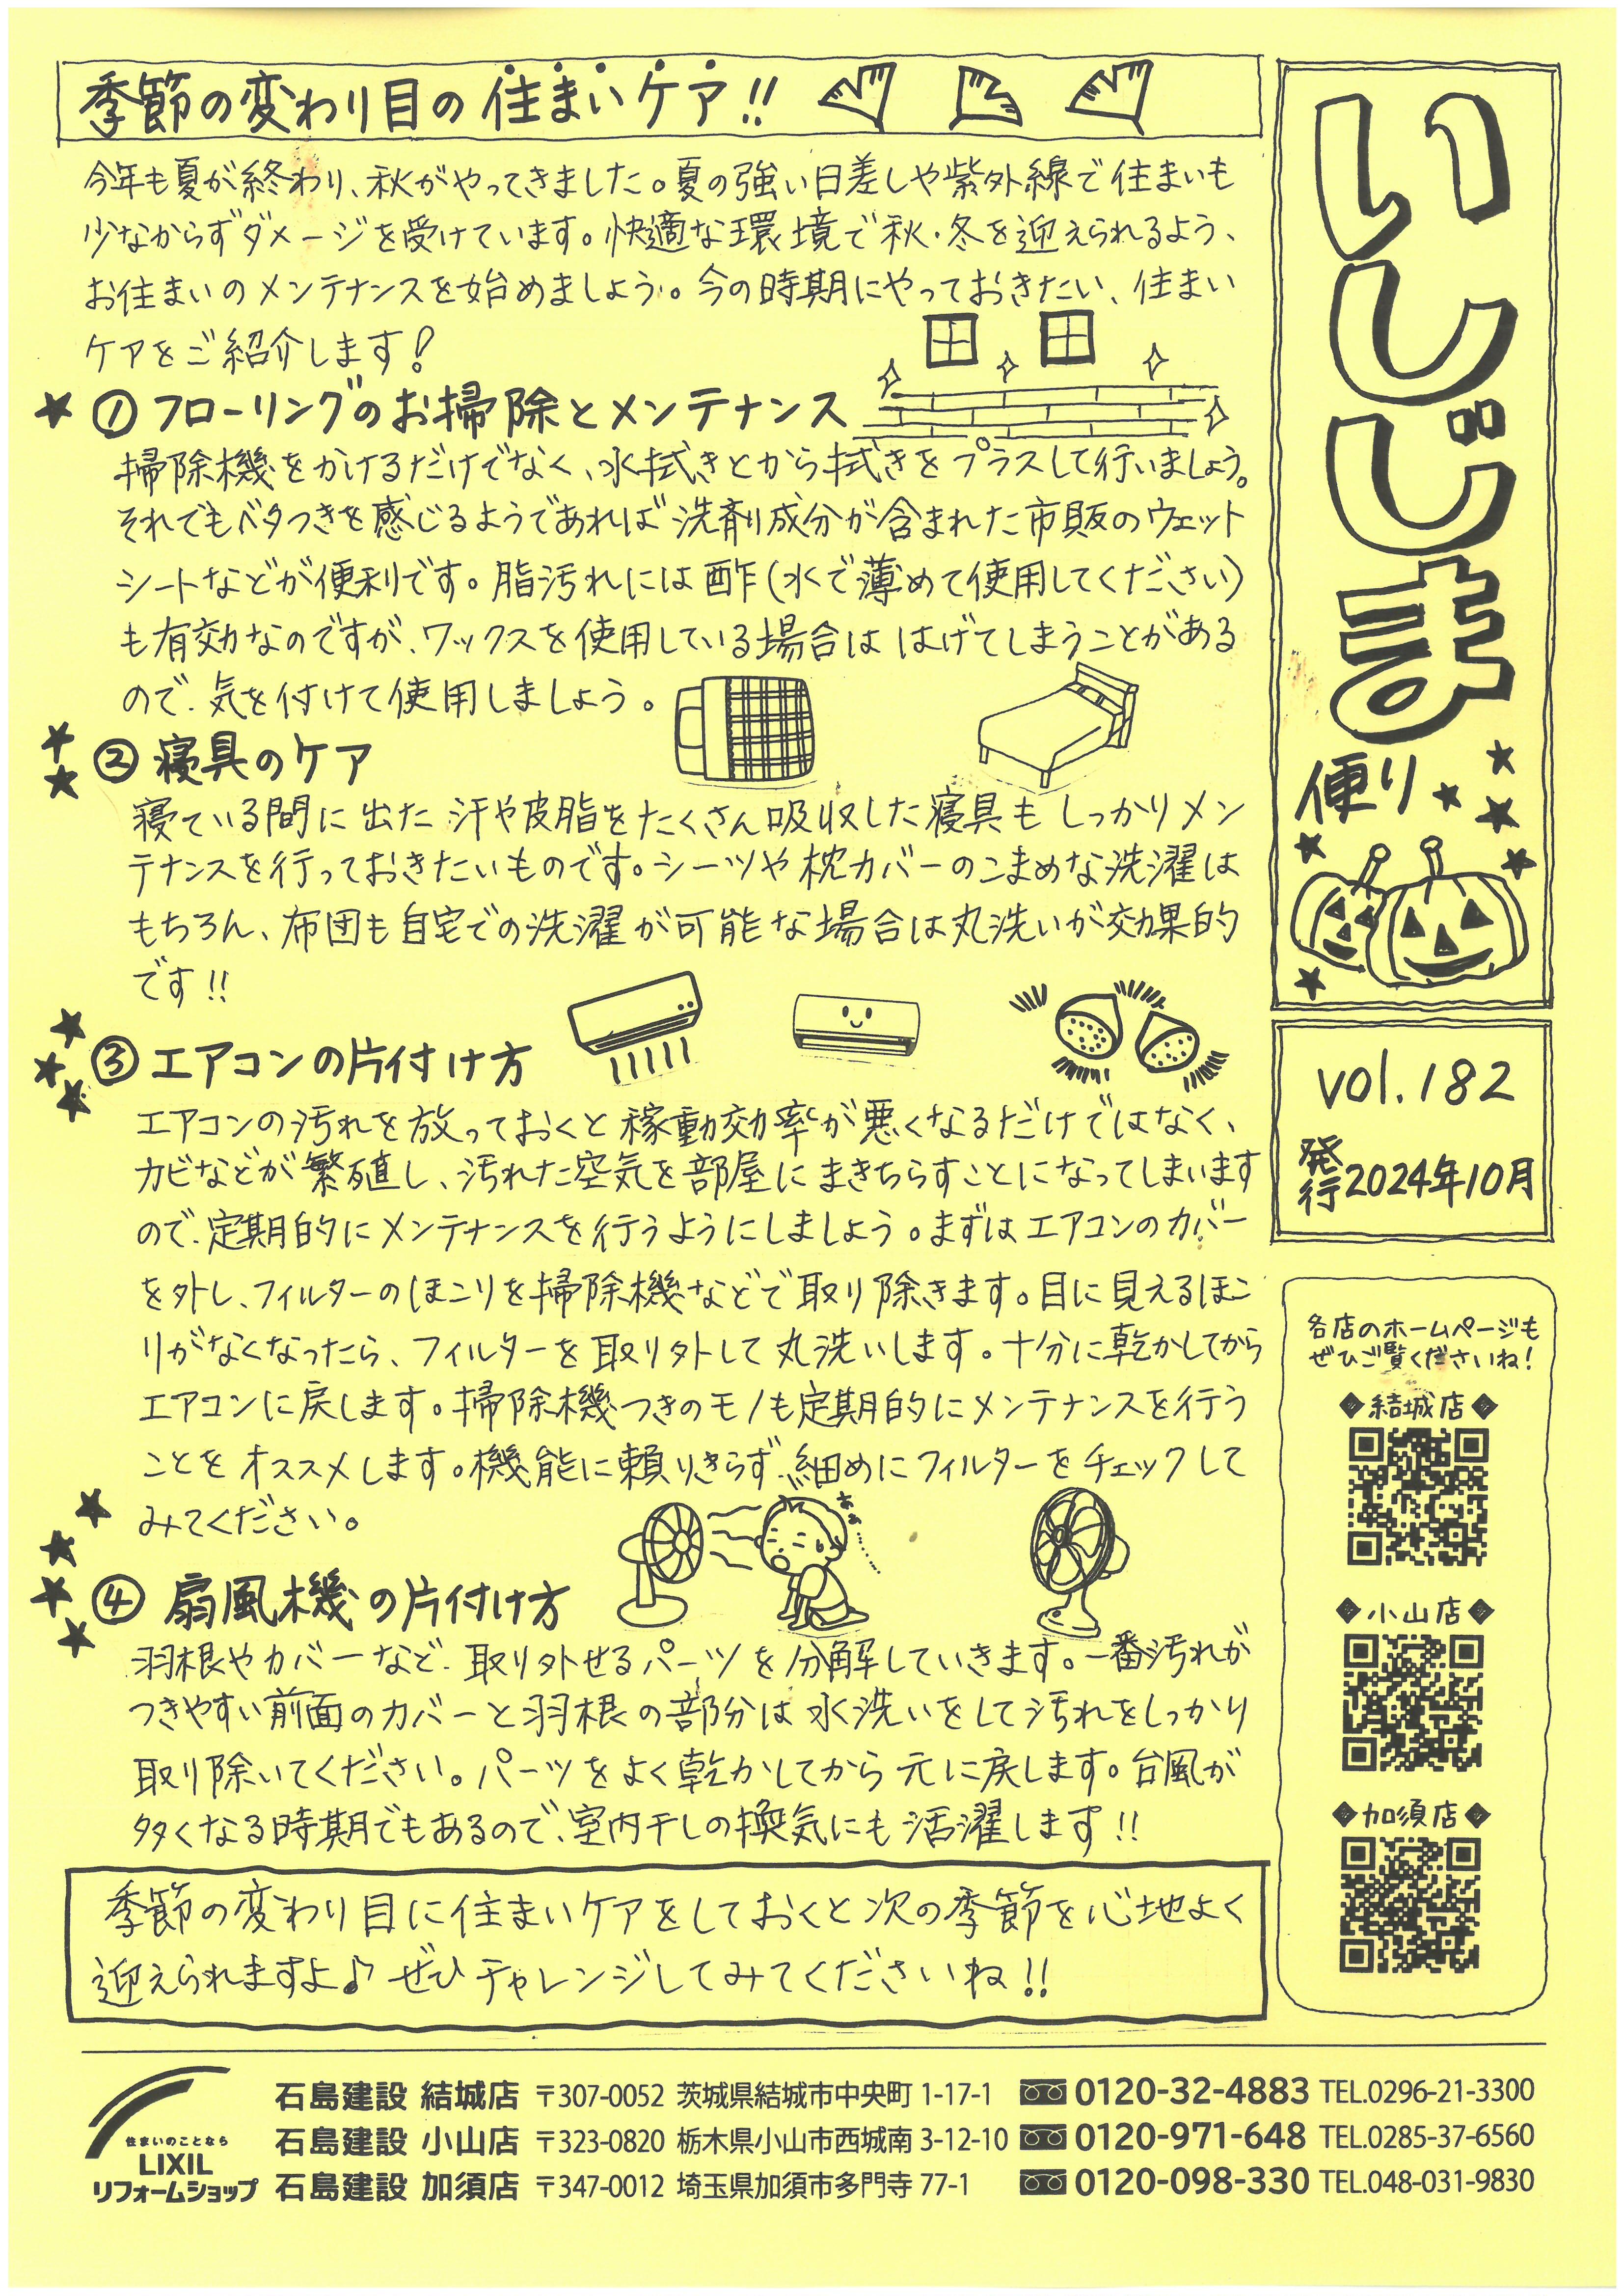 季節の変わり目の住まいケア!!
今年も夏が終わり、秋がやってきました。夏の強い日差しや紫外線で住まいも
少なからずダメージを受けています。快適な環境で秋・冬を迎えられるよう、
お住まいのメンテナンスを始めましょう。今の時期にやっておきたい、住まい
ケアをご紹介します!
① フローリングのお掃除とメンテナンス
掃除機をかけるだけでなく、水拭きとから拭きをプラスして行いましょう。
それでもベタつきを感じるようであれば洗剤成分が含まれた市販のウェット
シートなどが便利です。脂汚れには酢(水で薄めて使用してください)
も有効なのですが、ワックスを使用している場合ははげてしまうことがある
ので、気を付けて使用しましょう。
② 寝具のケア
寝ている間に出た汗や皮脂をたくさん吸収した寝具もしっかりメン
テナンスを行っておきたいものです。シーツや枕カバーのこまめな洗濯は
もちろん、布団も自宅での洗濯が可能な場合は丸洗いが効果的
です!!
③ エアコンの片付け方
エアコンの汚れを放っておくと稼動効率が悪くなるだけではなく、
カビなどが繁殖し、汚れた空気を部屋にまきちらすことになってしまいます
ので、定期的にメンテナンスを行うようにしましょう。まずはエアコンのカバー
を外し、フィルターのほこりを掃除機などで取り除きます。目に見えるほこ
りがなくなったら、フィルターを取り外して丸洗いします。十分に乾かしてから
エアコンに戻します。掃除機つきのモノも定期的にメンテナンスを行う
ことをオススメします。機能に頼りきらず、細めにフィルターをチェックして
みてください。
④ 扇風機の片付け方
羽根やカバーなど、取り外せるパーツを分解していきます。一番汚れが
つきやすい前面のカバーと羽根の部分は水洗いをして汚れをしっかり
取り除いてください。パーツをよく乾かしてから元に戻します。台風が
多くなる時期でもあるので、室内干しの換気にも活濯します!!
季節の変わり目に住まいケアをしておくと次の季節を心地よく
迎えられますよ♪ ぜひチャレンジしてみてくださいね!!
いしじま
便り
vol.182
発行 2024年10月
各店のホームページも
ぜひご覧くださいね!
◆結城店◆
◆小山店◆
◆加須店◆
住まいのことなら
LIXIL
リフォームショップ
石島建設 結城店 〒307-0052 茨城県結城市中央町 1-17-1 0120-32-4883 TEL.0296-21-3300
石島建設 小山店 〒323-0820 栃木県小山市西城南 3-12-10 0120-971-648 TEL.0285-37-6560
石島建設 加須店 〒347-0012 埼玉県加須市多門寺 77-1 0120-098-330 TEL.048-031-9830